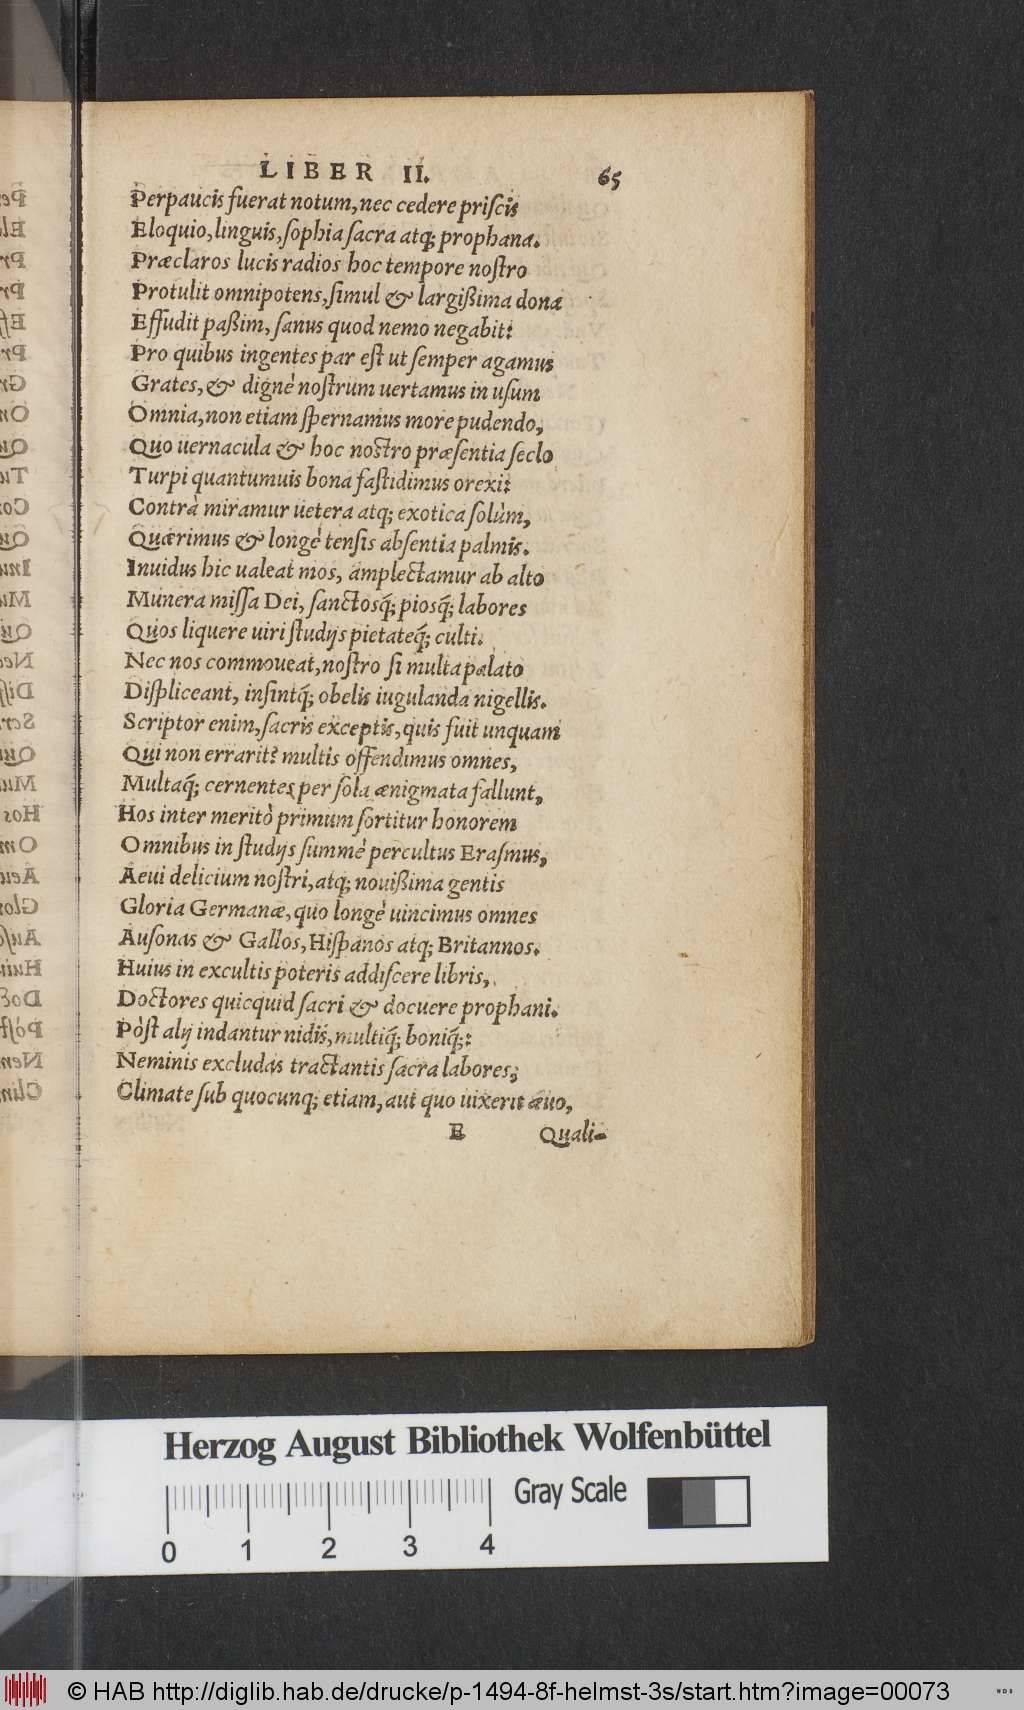 LIBER II. 65
Perpaucis fuerat notum, nec cedere priſcis
Eloquio, linguis, ſophia ſacra atq; prophana.
Præclaros lucis radios hoc tempore noſtro
Protulit omnipotens, ſimul & largißima dona
Effudit paßim, ſanus quod nemo negabit:
Pro quibus ingentes par eſt ut ſemper agamus
Grates, & dignè noſtrum uertamus in uſum
Omnia, non etiam ſpernamus more pudendo,
Quo uernacula & hoc noſtro præſentia ſeclo
Turpi quantumuis bona faſtidimus orexi:
Contrà miramur uetera atq; exotica ſolùm,
Quærimus & longè tenſis abſentia palmis.
Inuidus hic ualeat mos, amplectamur ab alto
Munera miſſa Dei, ſanctosq́; piosq́; labores
Quos liquere uiri ſtudijs pietateq́; culti.
Nec nos commoueat, noſtro ſi multa palato
Diſpliceant, inſintq́; obelis iugulanda nigellis.
Scriptor enim, ſacris exceptis, quis fuit unquam
Qui non errarit? multis offendimus omnes,
Multaq́; cernentes per ſola ænigmata fallunt,
Hos inter meritò primum ſortitur honorem
Omnibus in ſtudijs ſummè percultus Eraſmus,
Aeui delicium noſtri, atq; nouißima gentis
Gloria Germanæ, quo longè uincimus omnes
Auſonas & Gallos, Hiſpanos atq; Britannos.
Huius in excultis poteris addiſcere libris,
Doctores quicquid ſacri & docuere prophani.
Pòſt alij indantur nidis, multiq́; boniq́;:
Neminis excludas tractantis ſacra labores;
Climate ſub quocunq; etiam, aut quo uixerit æuo,
E Quali-
Herzog August Bibliothek Wolfenbüttel
Gray Scale
0 1 2 3 4
© HAB http://diglib.hab.de/drucke/p-1494-8f-helmst-3s/start.htm?image=00073